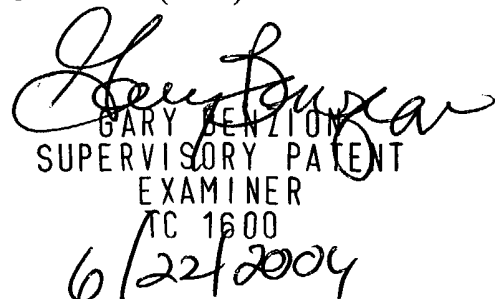 Gary Benzion
GARY BENZION
SUPERVISORY PATENT
EXAMINER
TC 1600
6/22/2004